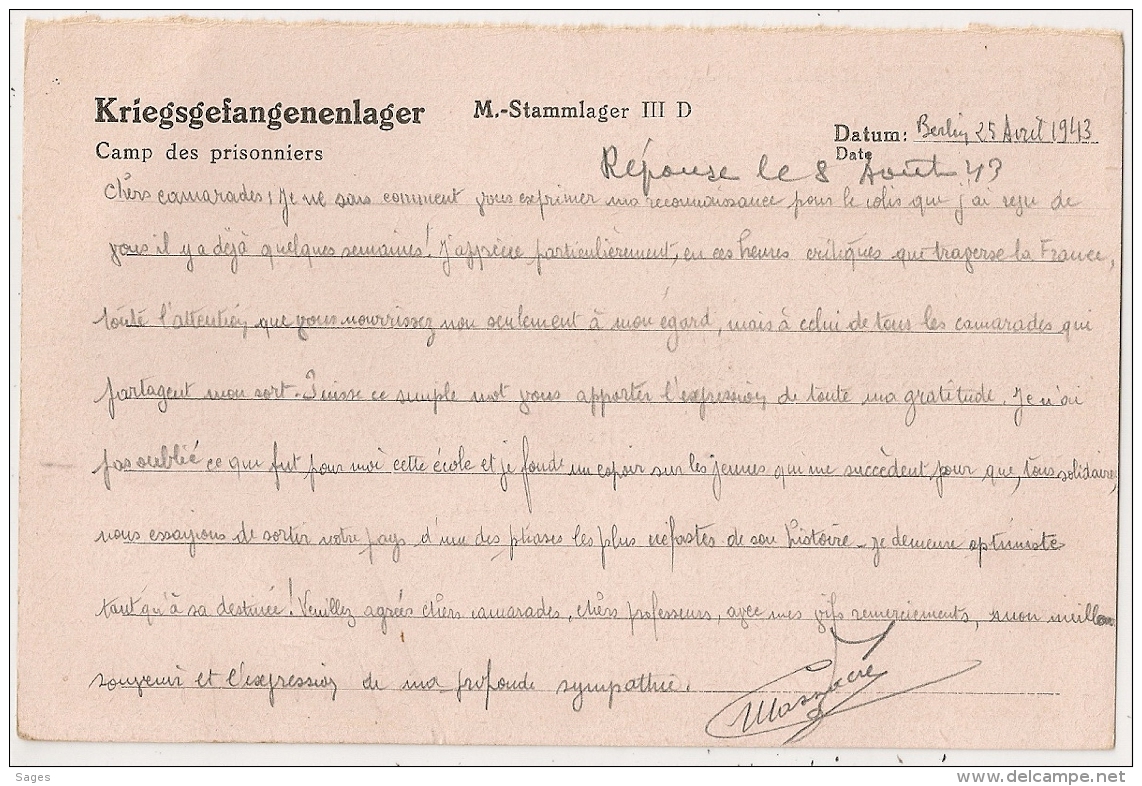 Kriegsgefangenenlager M.-Stammlager III D
Datum: Berlin 25 Avril 1943
Camp des prisonniers
Date
Réponse le 8 Août 43
Chers camarades, Je ne sais comment vous exprimer ma reconnaissance pour le colis que j'ai reçu de
vous il y a déjà quelques semaines! J'apprécie particulièrement, en ces heures critiques que traverse la France,
toute l'attention que vous nourrissez non seulement à mon égard, mais à celui de tous les camarades qui
partagent mon sort. Puisse ce simple mot vous apporter l'expression de toute ma gratitude. Je n'ai
pas oublié ce qui fut pour moi cette école et je fonde un espoir sur les jeunes qui me succèdent pour que, tous solidaires,
nous essayions de sortir notre pays d'une des phases les plus néfastes de son histoire. Je demeure optimiste
tant qu'à sa destinée! Veuillez agréer chers camarades, chers professeurs, avec mes vifs remerciements, mon meilleur
souvenir et l'expression de ma profonde sympathie.
Massacré
Sages
www.delcampe.net